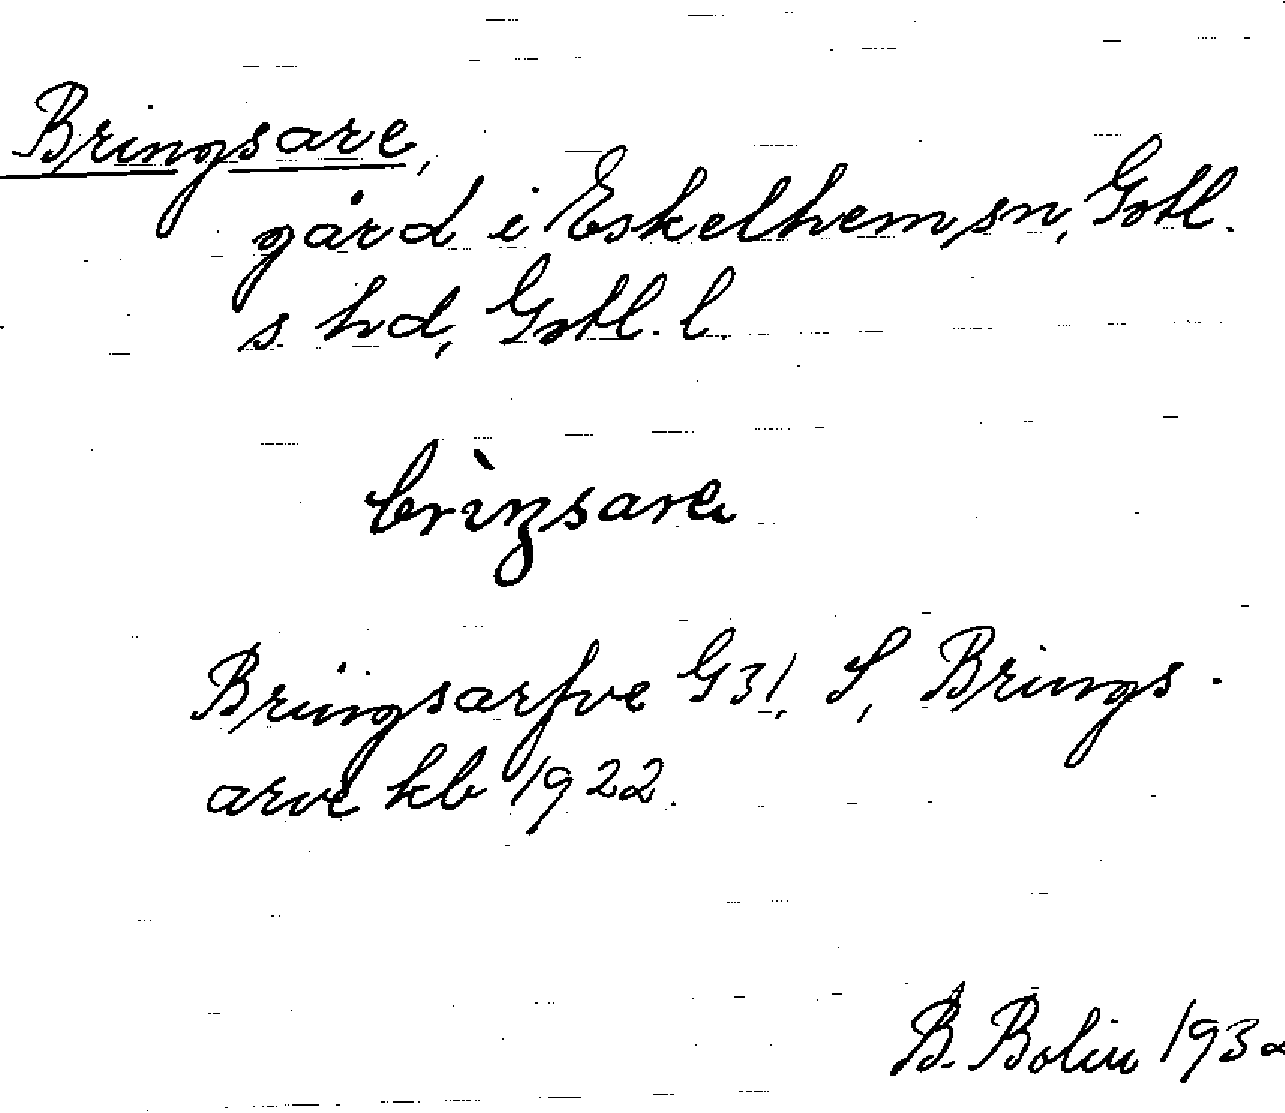 Bringsare,
gård i Eskelhem sn, Gotl.
s hd, Gotl. l.
brìŋsare
Bringsarfve G31, S, Brings-
arve kb 1922.
B. Bolin 1932